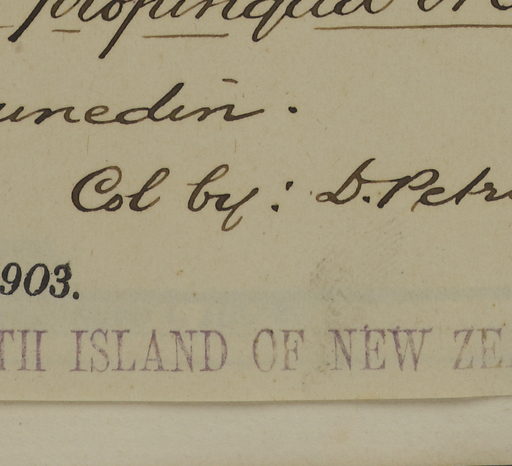 propinqua
unedin.
Col by: D. Petri
903.
TH ISLAND OF NEW ZE